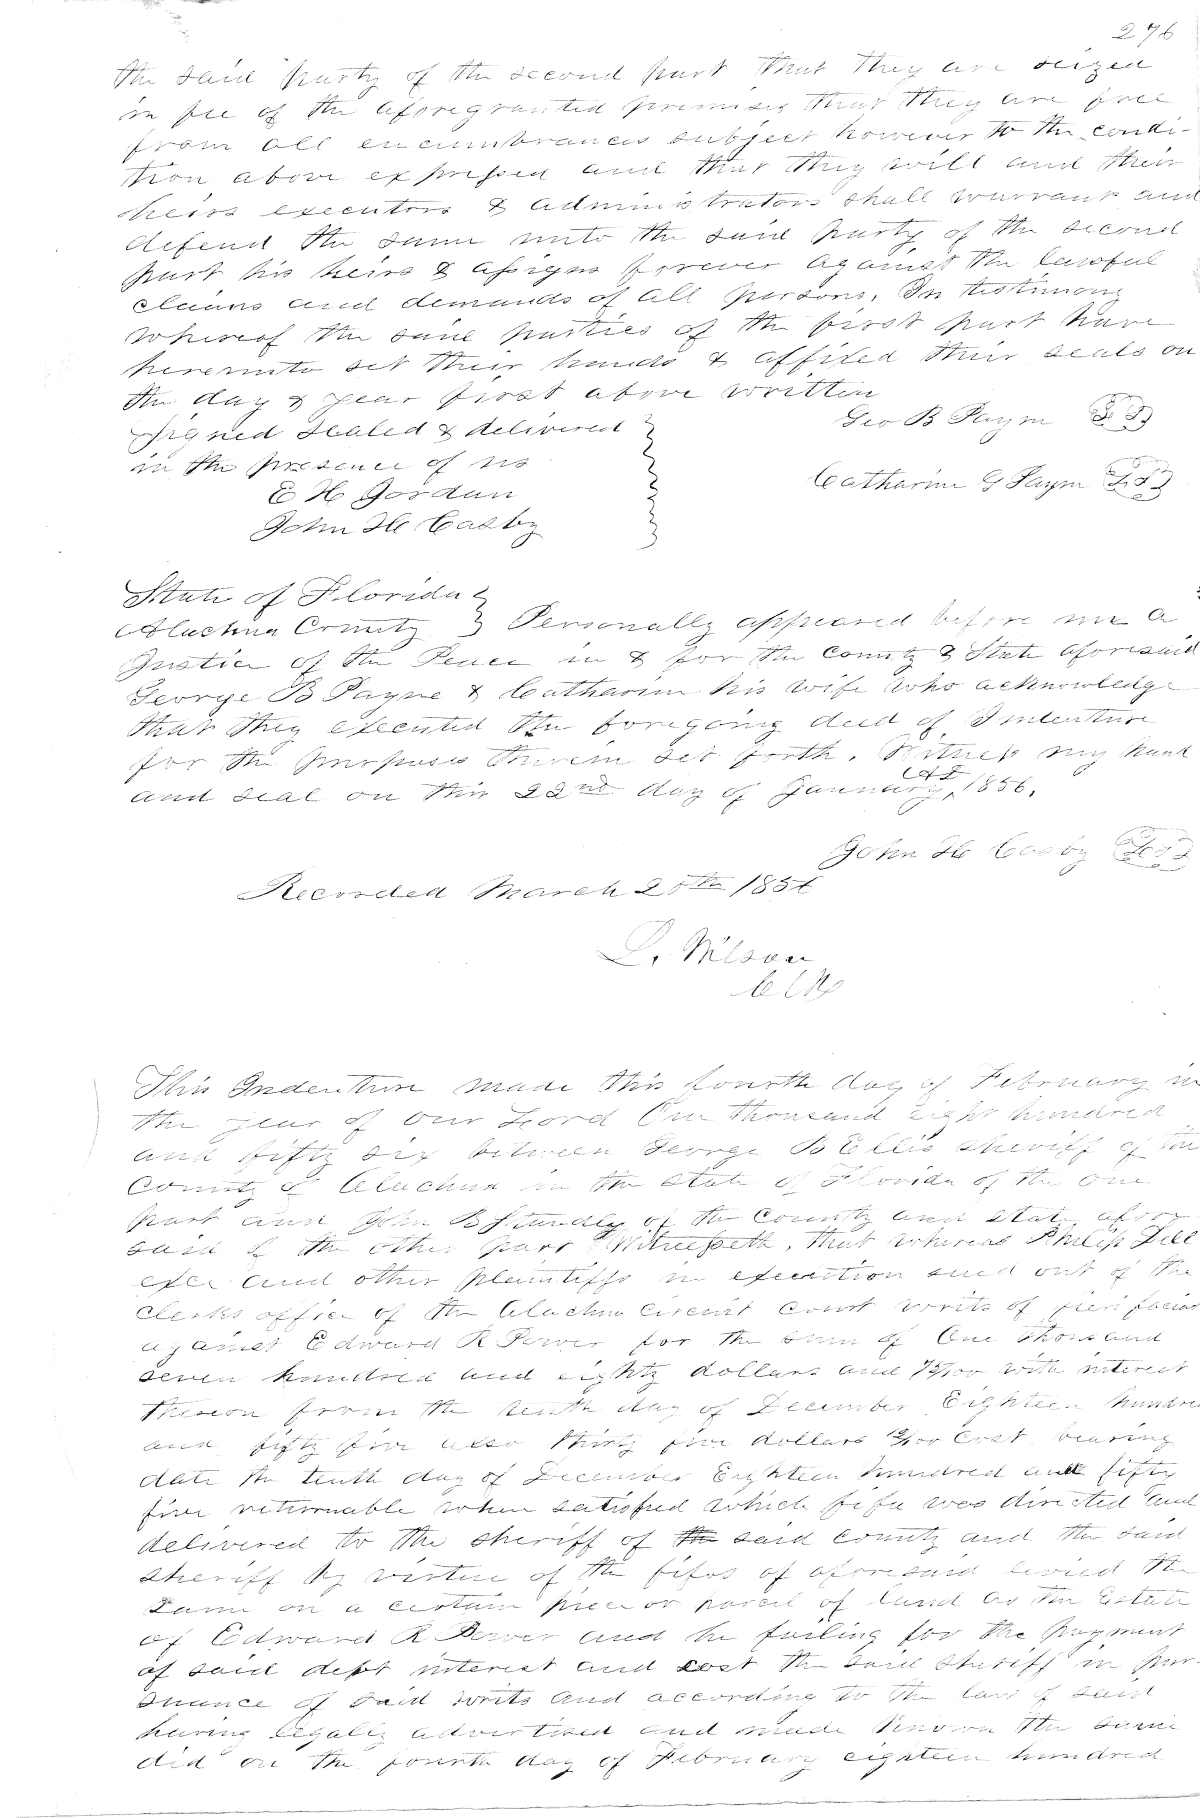 276
the said party of the second part that they are seized
in fee of the aforegranted premises that they are free
from all encumbrances subject however to the condi-
tion above expressed and that they will and their
heirs executors & administrators shall warrant and
defend the same unto the said party of the second
part his heirs & assigns forever against the lawful
claims and demands of all persons. In testimony
whereof the said parties of the first part have
hereunto set their hands & affixed their seals on
the day & year first above written
Signed sealed & delivered
in the presence of us
E H Jordan
John H Casby
Geo B Payne L S
Catharine G Payne L S
State of Florida
Alachua County } Personally appeared before me a
Justice of the Peace in & for the County & State aforesaid
George B Payne & Catharine his wife who acknowledge
that they executed the foregoing deed of Indenture
for the purposes therein set forth. Witness my hand
and seal on this 22nd day of January AD 1856.
John H Casby L S
Recorded March 25th 1856
L. Wilson
Clk
This Indenture made this fourth day of February in
the year of our Lord One thousand eight hundred
and fifty six between George B Ellis sheriff of the
County of Alachua in the state of Florida of the one
part and John B Standly of the County and state afore
said of the other part Witnesseth, that whereas Philip Dell
exer and other plaintiffs in execution sued out of the
clerks office of the Alachua circuit court writs of fieri facias
against Edward R Power for the sum of One thousand
seven hundred and eighty dollars and /100 with interest
thereon from the tenth day of December Eighteen hundred
and fifty five also thirty five dollars /100 Cost bearing
date the tenth day of December Eighteen hundred and fifty
five returnable when satisfied which fifa was directed and
delivered to the sheriff of the said county and the said
sheriff by virtue of the fifas of aforesaid levied the
same on a certain piece or parcel of land as the Estate
of Edward R Power and he failing for the payment
of said debt interest and cost the said sheriff in pur-
suance of said writs and according to the law of said
having legally advertised and made known the same
did on the fourth day of February eighteen hundred